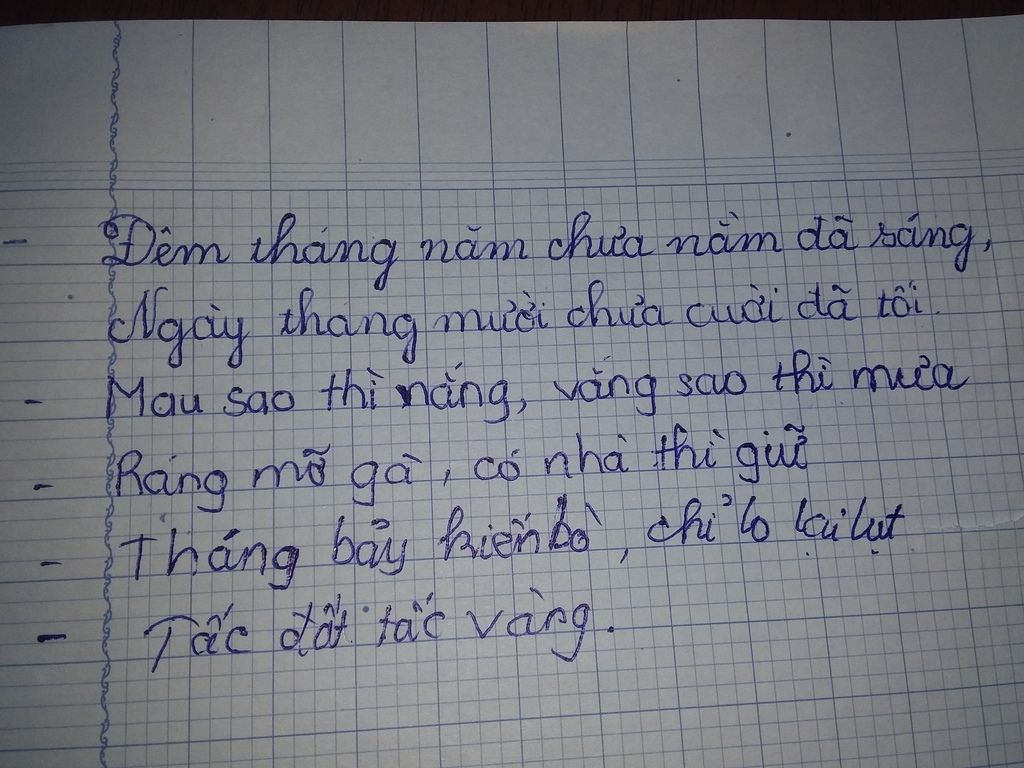 - Đêm tháng năm chưa nằm đã sáng,
Ngày tháng mười chưa cười đã tối.
- Mau sao thì nắng, vắng sao thì mưa
- Ráng mỡ gà, có nhà thì giữ
- Tháng bảy kiến bò, chỉ lo lại lụt
- Tấc đất tấc vàng.